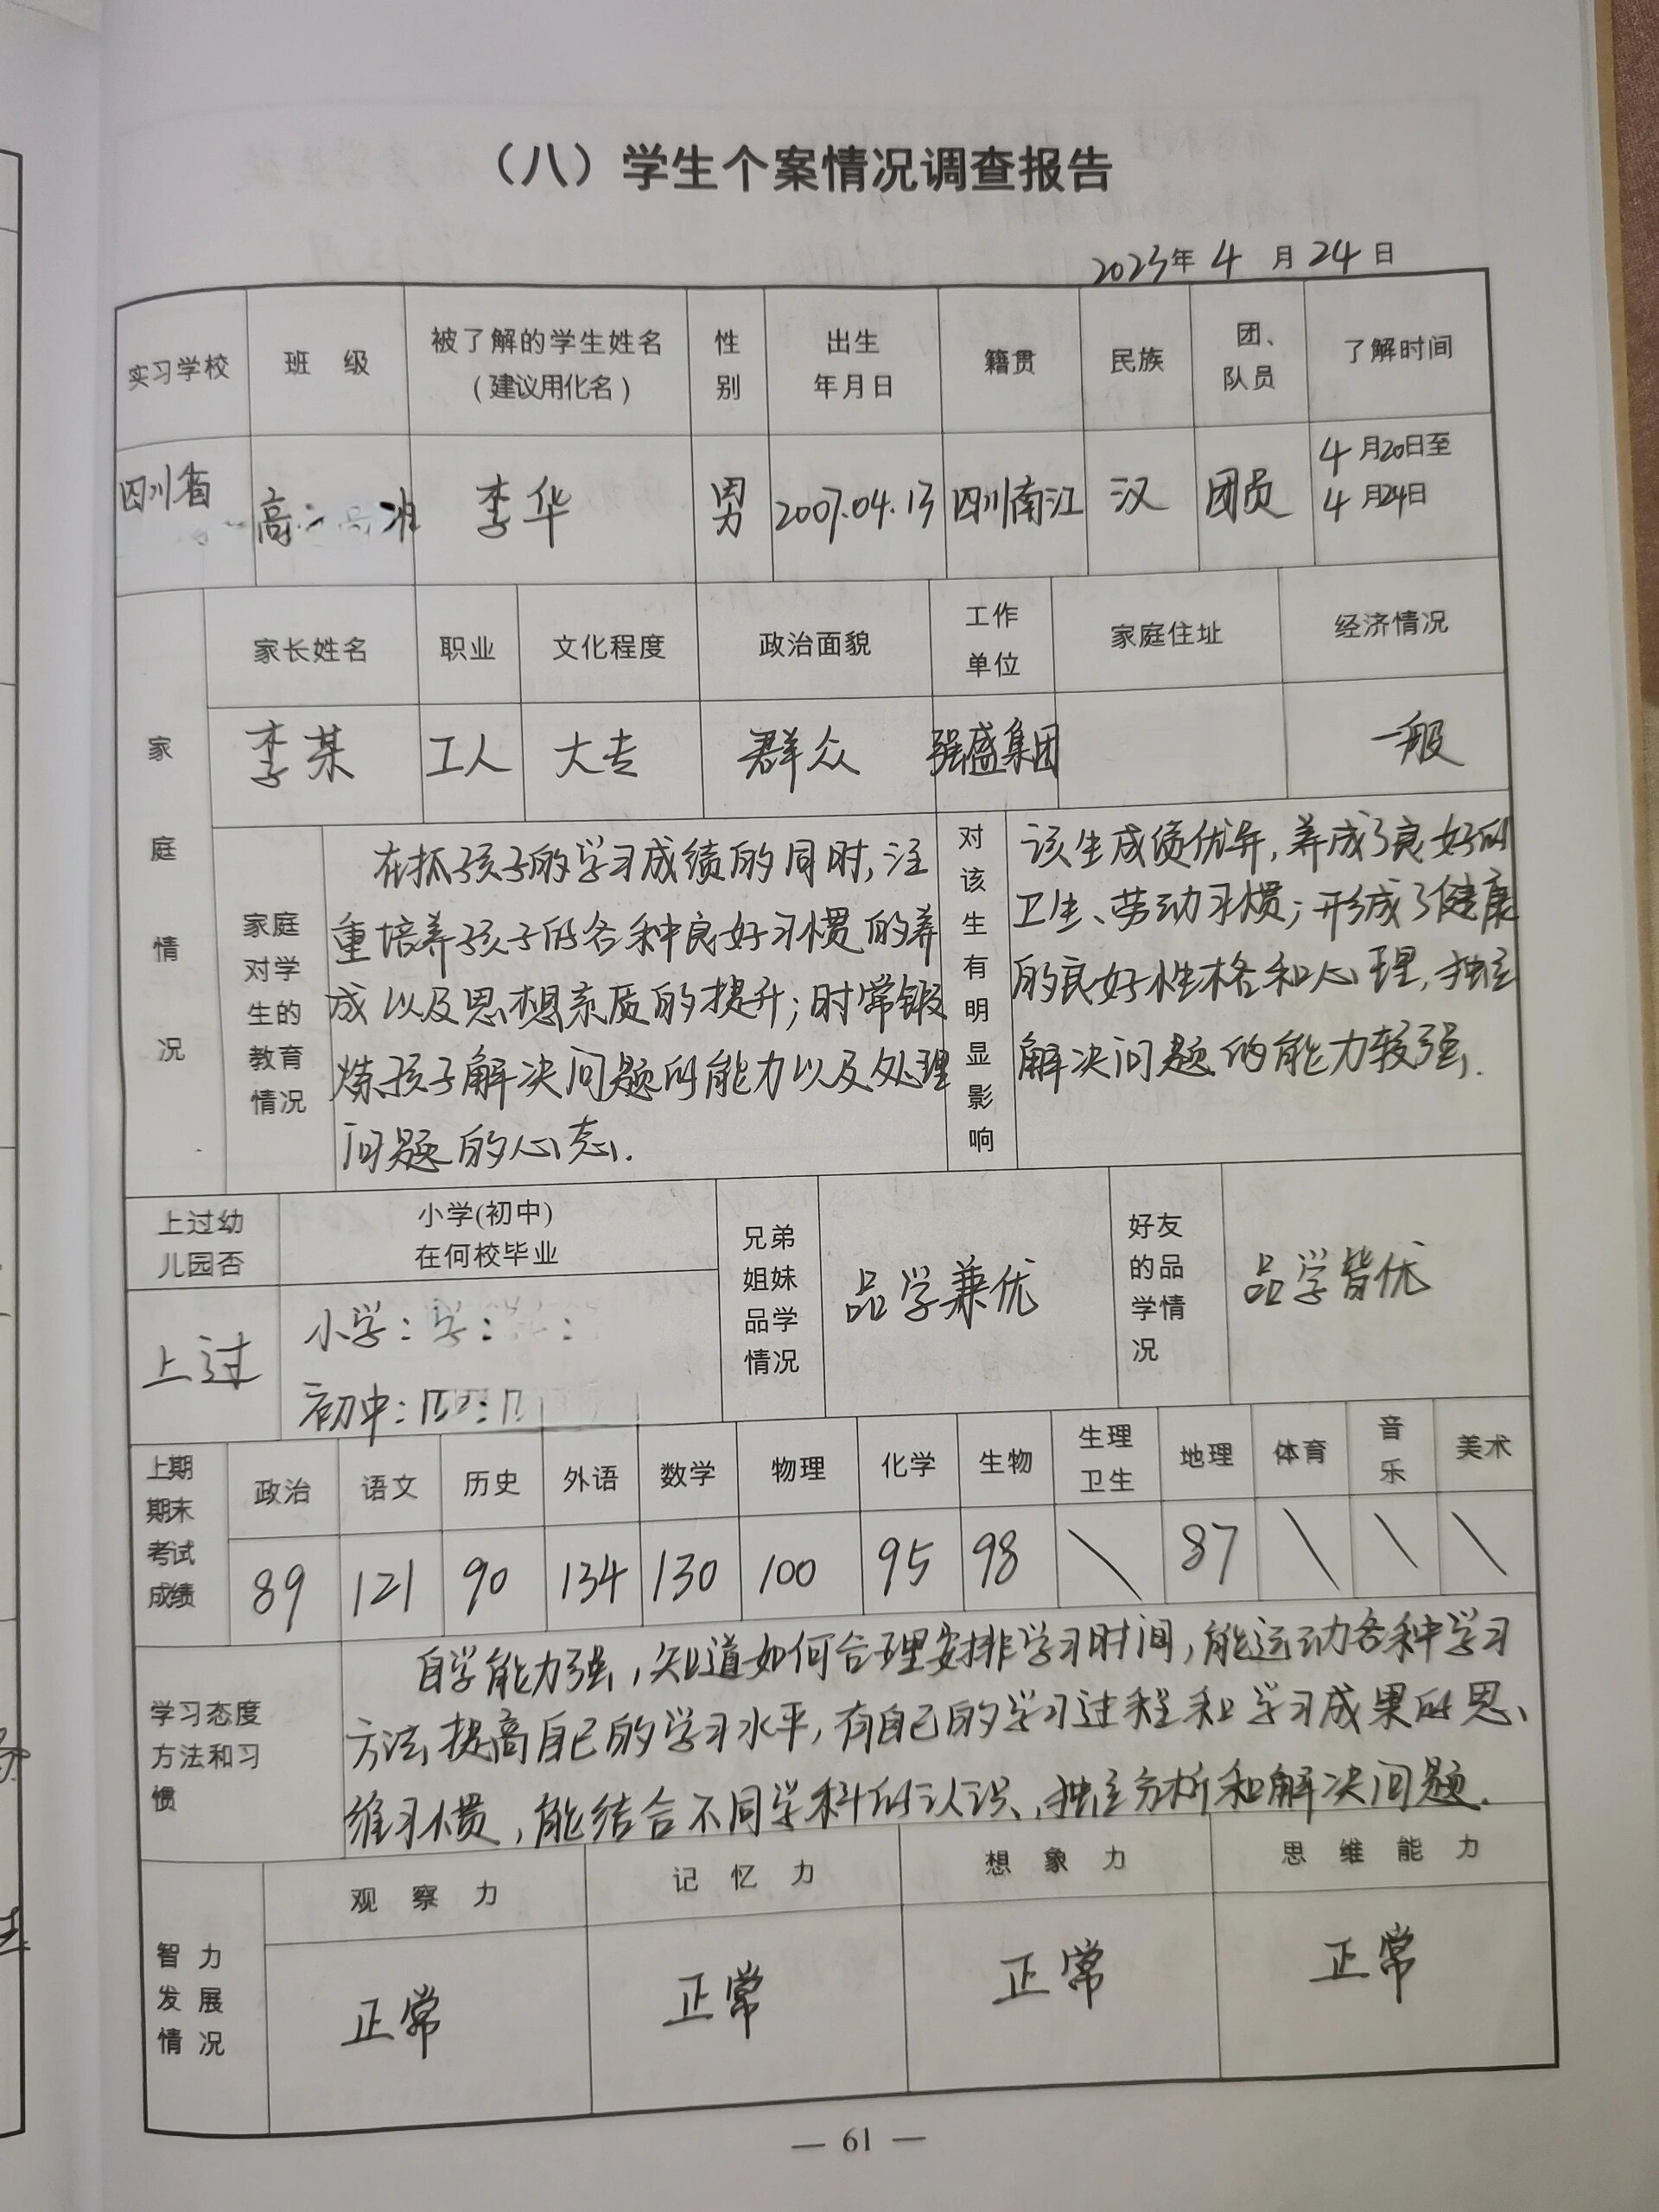 （八）学生个案情况调查报告
2023年 4 月 24 日
实习学校 班 级 被了解的学生姓名（建议用化名） 性别 出生年月日 籍贯 民族 团、队员 了解时间
四川省 高 李华 男 2007.04.13 四川南江 汉 团员 4月20日至4月24日
家庭情况
家长姓名 职业 文化程度 政治面貌 工作单位 家庭住址 经济情况
李某 工人 大专 群众 强盛集团 一般
家庭对学生的教育情况
在抓孩子的学习成绩的同时,注
重培养孩子的各种良好习惯的养
成以及思想素质的提升;时常锻
炼孩子解决问题的能力以及处理
问题的心态.
对该生有明显影响
该生成绩优异,养成了良好的
卫生、劳动习惯;形成了健康
的良好性格和心理,独立
解决问题的能力较强.
上过幼儿园否 小学(初中)在何校毕业 兄弟姐妹品学情况 品学兼优 好友的品学情况 品学皆优
上过
小学:
初中:
上期期末考试成绩
政治 语文 历史 外语 数学 物理 化学 生物 生理卫生 地理 体育 音乐 美术
89 121 90 134 130 100 95 98 \ 87 \ \ \
学习态度方法和习惯
自学能力强,知道如何合理安排学习时间,能运动各种学习
方法提高自己的学习水平,有自己的学习过程和学习成果的思
维习惯,能结合不同学科的认识,独立分析和解决问题.
智力发展情况
观 察 力 记 忆 力 想 象 力 思 维 能 力
正常 正常 正常 正常
— 61 —